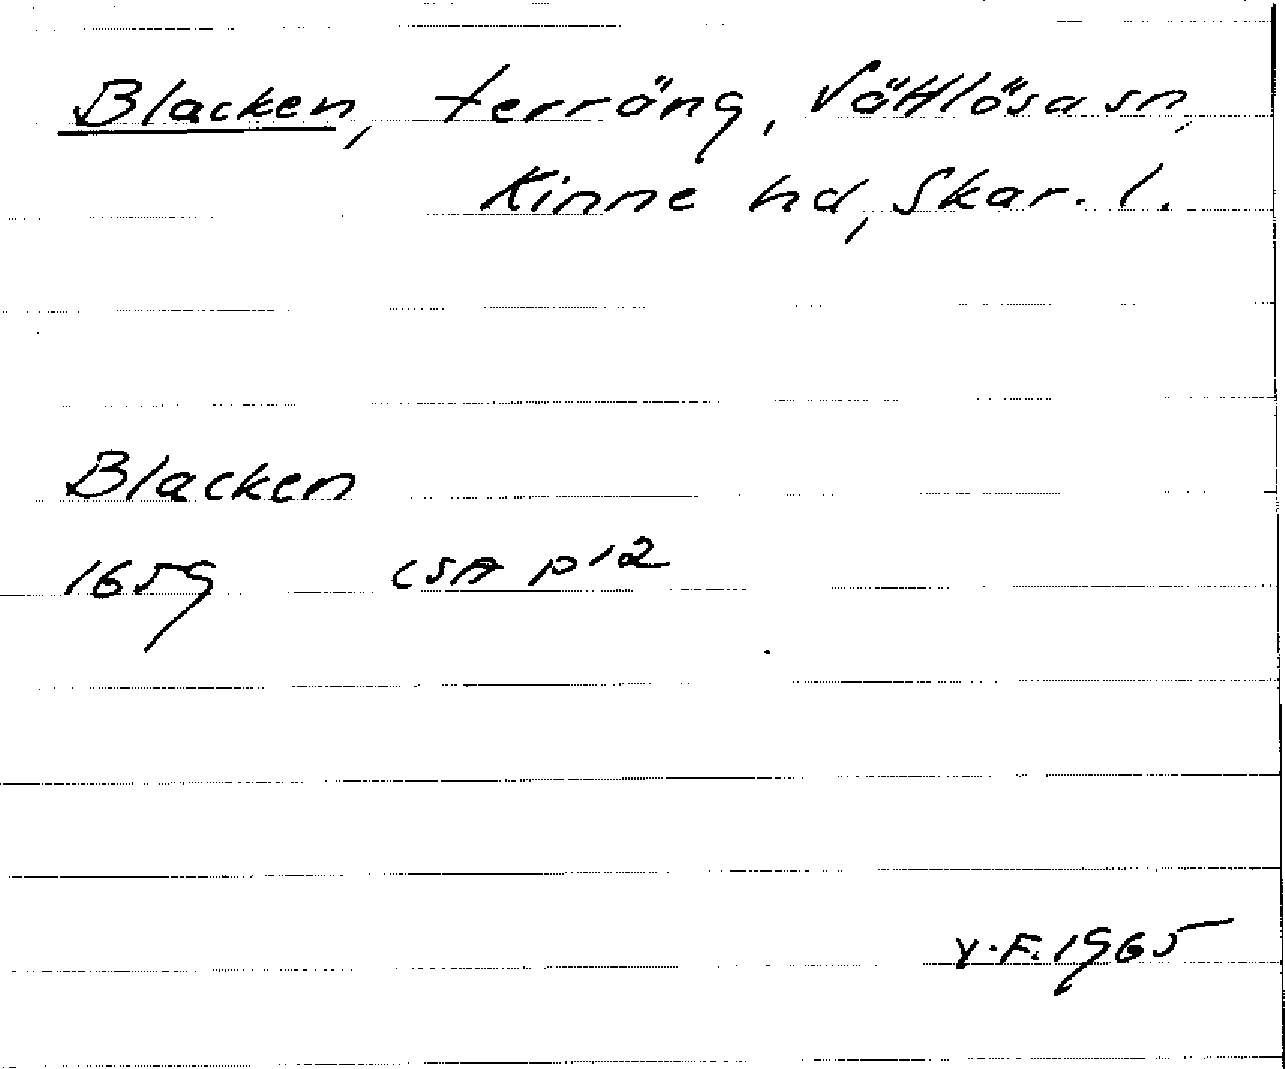 Blacken, terräng, Vättlösa sn,
Kinne hd, Skar. l.
Blacken
1659 LSA P12
Y.F. 1965